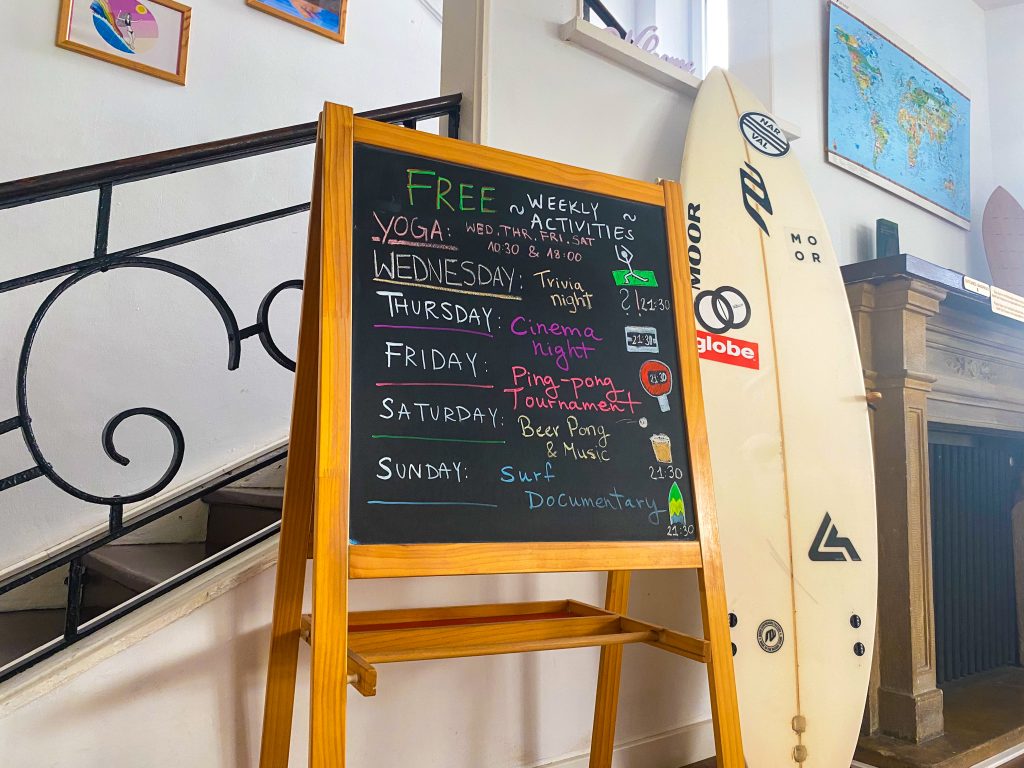 FREE ~ WEEKLY
ACTIVITIES ~
YOGA: WED. THR. FRI. SAT
10:30 & 18:00
WEDNESDAY: Trivia
night
?! 21:30
THURSDAY: Cinema
night
21:30
FRIDAY: Ping-pong
Tournament
21:30
SATURDAY: Beer Pong
& Music
21:30
SUNDAY: Surf
Documentary
21:30
NAR
VAL
MOOR
MO
OR
globe